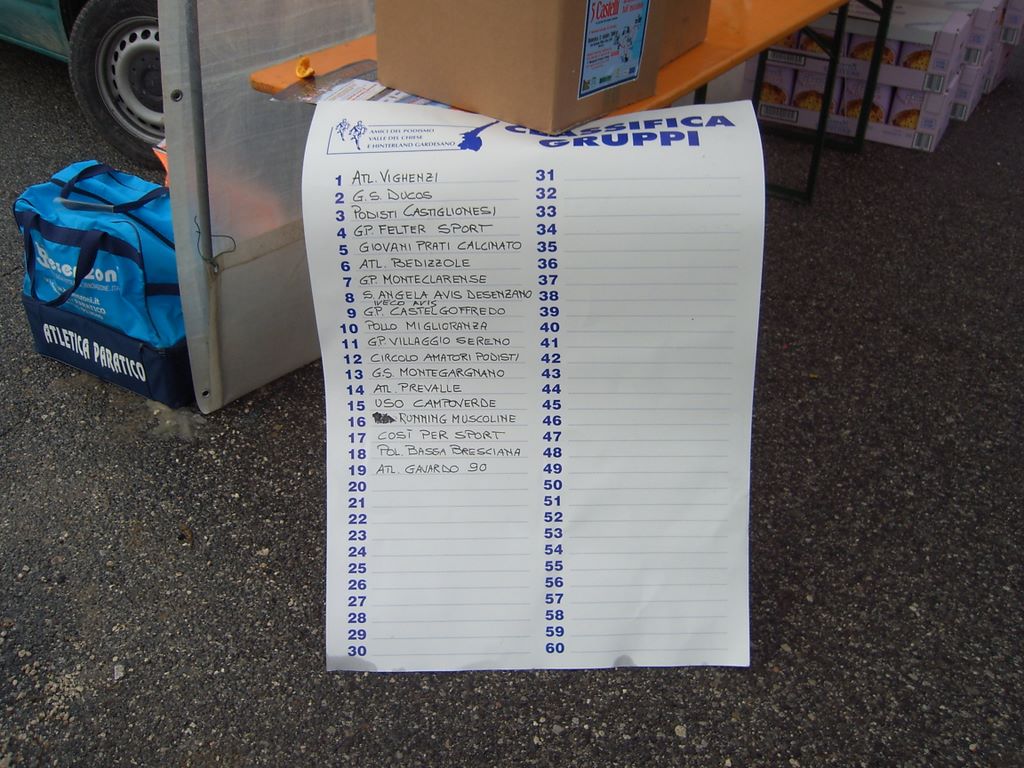 5 Castelli
AMICI DEL PODISMO
VALLE DEL CHIESE
E HINTERLAND GARDESANO
CLASSIFICA
GRUPPI
1 ATL. VIGHENZI
2 G.S. DUCOS
3 PODISTI CASTIGLIONESI
4 GP. FELTER SPORT
5 GIOVANI PRATI CALCINATO
6 ATL. BEDIZZOLE
7 GP. MONTECLARENSE
8 S. ANGELA AVIS DESENZANO
IVECO AVIS
9 GP. CASTELGOFFREDO
10 POLLO MIGLIORANZA
11 GP. VILLAGGIO SERENO
12 CIRCOLO AMATORI PODISTI
13 G.S. MONTEGARGNANO
14 ATL. PREVALLE
15 USO CAMPOVERDE
16 RUNNING MUSCOLINE
17 COSÌ PER SPORT
18 POL. BASSA BRESCIANA
19 ATL. GAVARDO 90
20
21
22
23
24
25
26
27
28
29
30
31
32
33
34
35
36
37
38
39
40
41
42
43
44
45
46
47
48
49
50
51
52
53
54
55
56
57
58
59
60
ATLETICA PARATICO